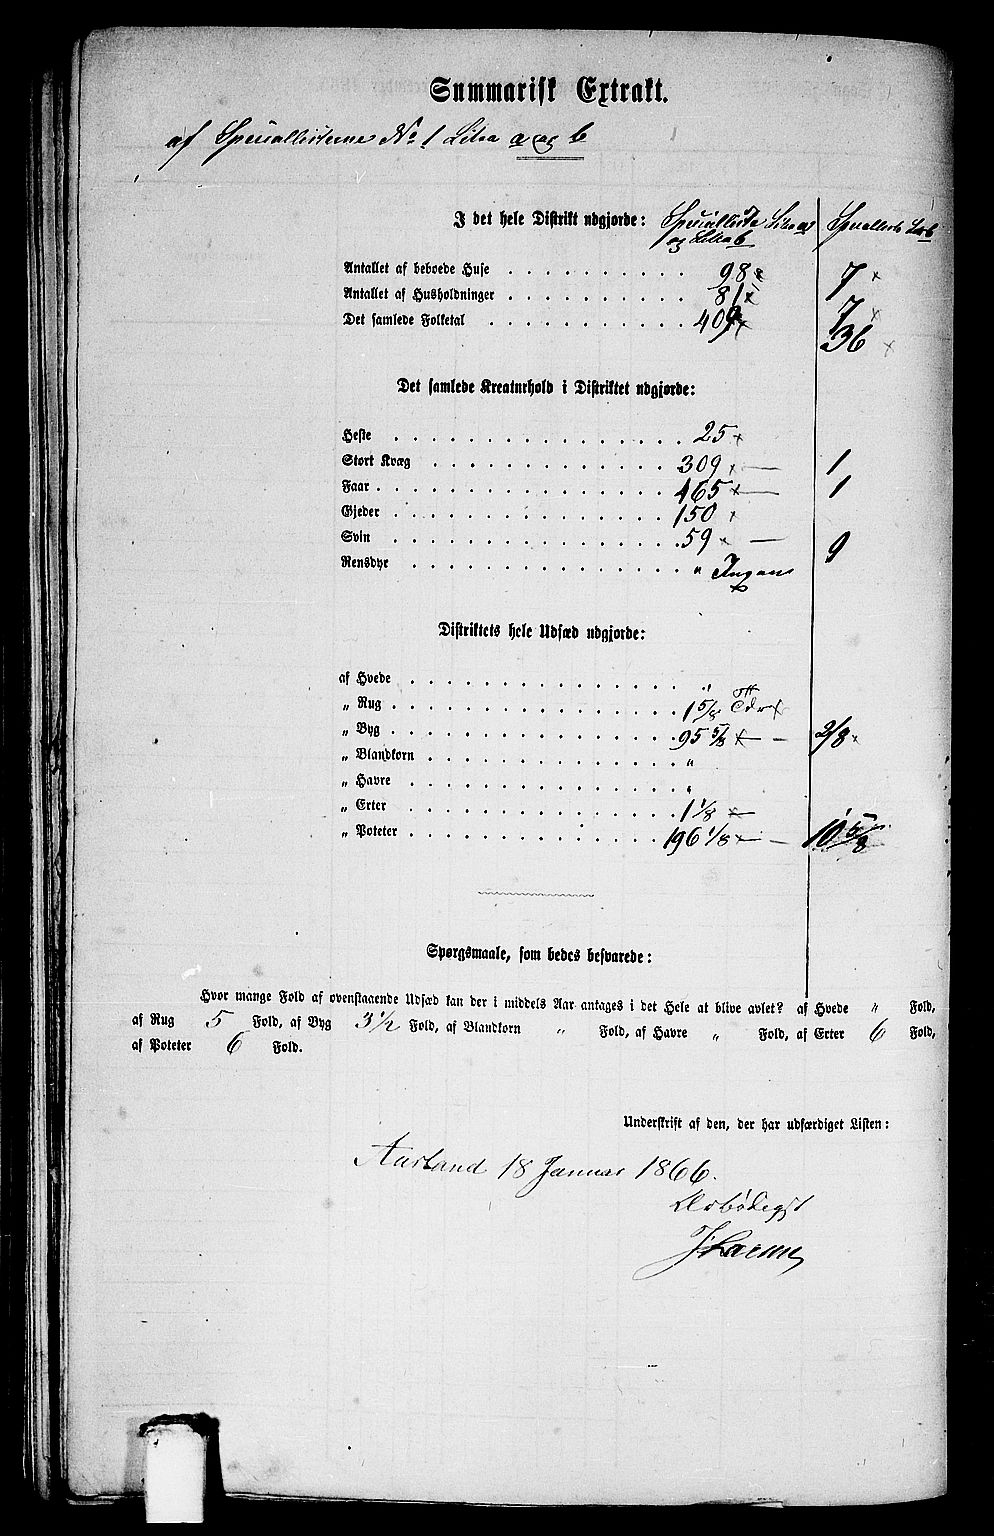 Summarisk Extrakt.
af Speciallisterne No 1 Litra a og b
I det hele Distrikt udgjorde: Specialliste Litra a Speciallist Litr b
og Litra b
Antallet af beboede Huse 98 7
Antallet af Husholdninger 81 7
Det samlede Folketal 409 36
Det samlede Kreaturhold i Distriktet udgjorde:
Heste 25
Stort Kvæg 309 1
Faar 465 1
Gjeder 150
Svin 59 9
Rensdyr " Ingen
Distriktets hele Udsæd udgjorde:
af Hvede "
" Rug 1 5/8 Tdr
" Byg 95 5/8 2/8
" Blandkorn "
" Havre "
" Erter 1 1/8
" Poteter 196 1/8 10 5/8
Spørgsmaale, som bedes besvarede:
Hvor mange Fold af ovenstaaende Udsæd kan der i middels Aar antages i det Hele at blive avlet? af Hvede " Fold,
af Rug 5 Fold, af Byg 3 1/2 Fold, af Blandkorn " Fold, af Havre " Fold, af Erter 6 Fold,
af Poteter 6 Fold.
Underskrift af den, der har udfærdiget Listen:
Aurland 18 Januar 1866.
Ærbødigst